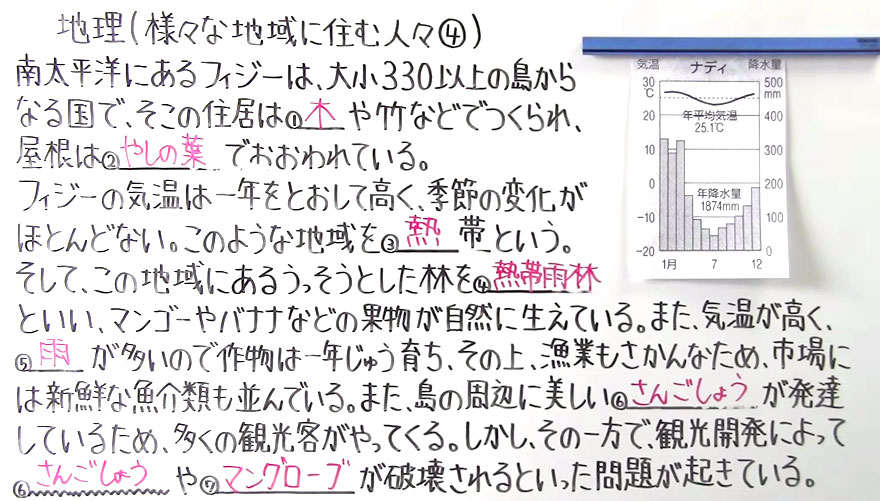 地理(様々な地域に住む人々④)
南太平洋にあるフィジーは、大小330以上の島から
なる国で、そこの住居は①木や竹などでつくられ、
屋根は②やしの葉でおおわれている。
フィジーの気温は一年をとおして高く、季節の変化が
ほとんどない。このような地域を③熱帯という。
そして、この地域にあるうっそうとした林を④熱帯雨林
といい、マンゴーやバナナなどの果物が自然に生えている。また、気温が高く、
⑤雨が多いので作物は一年じゅう育ち、その上、漁業もさかんなため、市場に
は新鮮な魚介類も並んでいる。また、島の周辺に美しい⑥さんごしょうが発達
しているため、多くの観光客がやってくる。しかし、その一方で、観光開発によって
⑥さんごしょうや⑦マングローブが破壊されるといった問題が起きている。
気温 ナディ 降水量
30 500
℃ mm
20 400
年平均気温
25.1℃
10 300
0 200
年降水量
1874mm
-10 100
-20 0
1月 7 12